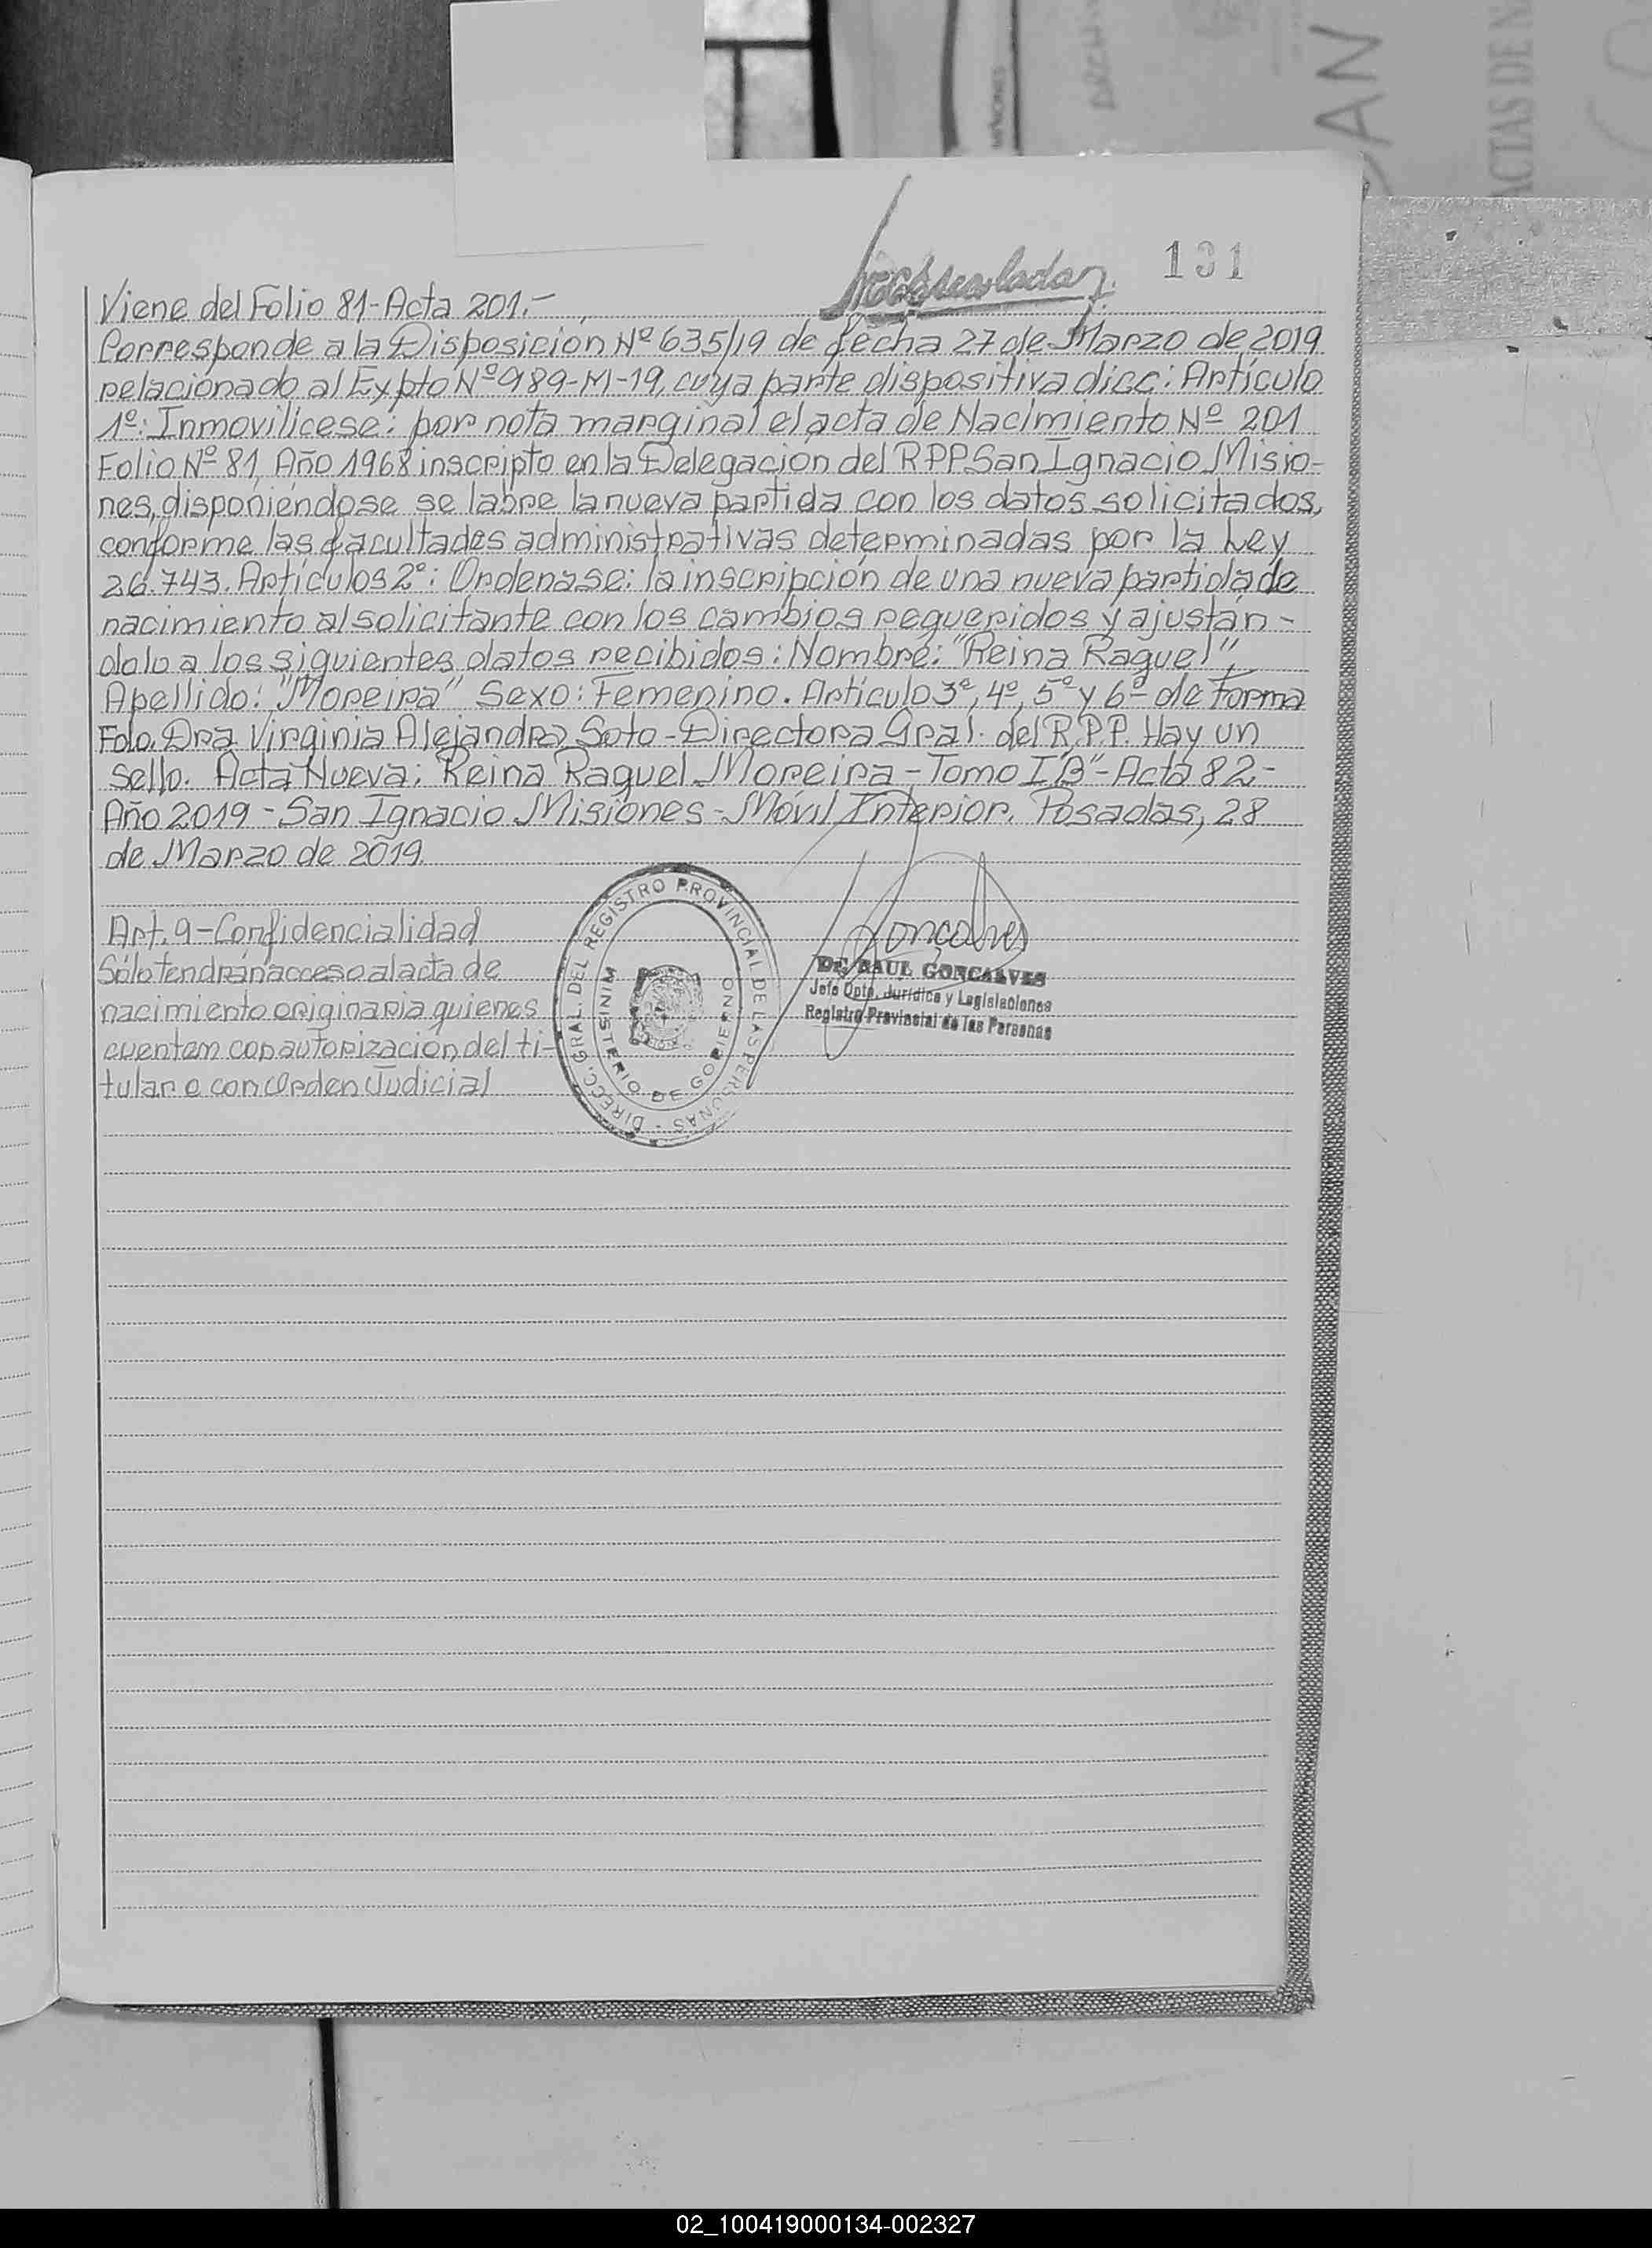 131
Viene del Folio 81-Acta 201.-
Corresponde a la Disposición Nº 635/19 de fecha 27 de Marzo de 2019
relacionado al Expto Nº 989-M-19, cuya parte dispositiva dice: Artículo
1º: Inmovilicese: por nota marginal el acta de Nacimiento Nº 201
Folio Nº 81, Año 1968 inscripto en la Delegación del RPP San Ignacio Misio-
nes, disponiéndose se labre la nueva partida con los datos solicitados,
conforme las facultades administrativas determinadas por la Ley
26.743. Artículos 2º: Ordenase: la inscripción de una nueva partida de
nacimiento al solicitante con los cambios requeridos y ajustán-
dolo a los siguientes datos recibidos: Nombre: "Reina Raquel",
Apellido: "Moreira" Sexo: Femenino. Artículo 3º, 4º, 5º y 6º de Forma
Fdo. Dra Virginia Alejandra Soto - Directora Gral. del R.P.P. Hay un
sello. Acta Nueva: Reina Raquel Moreira - Tomo I "B" - Acta 82 -
Año 2019 - San Ignacio Misiones - Móvil Interior. Posadas, 28
de Marzo de 2019.
Art. 9 - Confidencialidad
Sólo tendrán acceso al acta de
nacimiento originaria quienes
cuenten con autorización del ti-
tular o con Orden Judicial
DIRECC. GRAL. DEL REGISTRO PROVINCIAL DE LAS PERSONAS -
MINISTERIO DE GOBIERNO
Goncalves
RAUL GONCALVES
Jefe Dpto. Jurídica y Legislaciones
Registro Provincial de las Personas
ACTAS DE
02_100419000134-002327